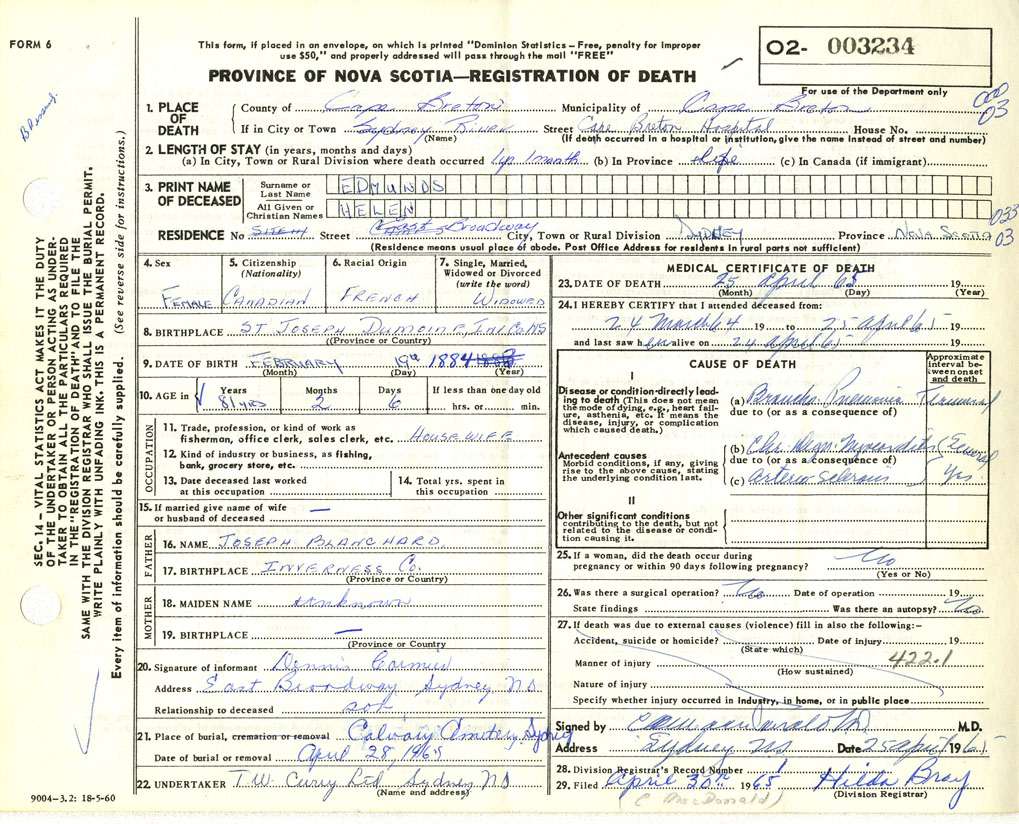 FORM 6
This form, if placed in an envelope, on which is printed "Dominion Statistics – Free, penalty for improper
use $50," and properly addressed will pass through the mail "FREE"
PROVINCE OF NOVA SCOTIA—REGISTRATION OF DEATH
02- 003234
For use of the Department only
03
1. PLACE OF DEATH
County of Cape Breton Municipality of Cape Breton
If in City or Town Sydney River (Name) Street Cape Breton Hospital House No.
(If death occurred in a hospital or institution, give the name instead of street and number)
2. LENGTH OF STAY (in years, months and days)
(a) In City, Town or Rural Division where death occurred 1 yr 1 month (b) In Province Life (c) In Canada (if immigrant)
3. PRINT NAME OF DECEASED
Surname or Last Name EDMUNDS
All Given or Christian Names HELEN
033
RESIDENCE No Street East Broadway City, Town or Rural Division SYDNEY Province NOVA SCOTIA 03
(Residence means usual place of abode. Post Office Address for residents in rural parts not sufficient)
4. Sex FEMALE
5. Citizenship (Nationality) CANADIAN
6. Racial Origin FRENCH
7. Single, Married, Widowed or Divorced (write the word) WIDOWED
8. BIRTHPLACE ST JOSEPH DUMOINE, INV. CO NS
((Province or Country)
9. DATE OF BIRTH FEBRUARY 19th 1884
(Month) (Day) (Year)
10. AGE in Years 81 YRS Months 2 Days 6 If less than one day old hrs. or min.
OCCUPATION
11. Trade, profession, or kind of work as
fisherman, office clerk, sales clerk, etc. HOUSEWIFE
12. Kind of industry or business, as fishing,
bank, grocery store, etc.
13. Date deceased last worked at this occupation
14. Total yrs. spent in this occupation
15. If married give name of wife
or husband of deceased —
FATHER
16. NAME JOSEPH BLANCHARD
17. BIRTHPLACE INVERNESS Co.
(Province or Country)
MOTHER
18. MAIDEN NAME Unknown
19. BIRTHPLACE —
(Province or Country
20. Signature of informant Dennis Cormier
Address East Broadway Sydney NS
Relationship to deceased son
21. Place of burial, cremation or removal Calvary Cemetery Sydney
Date of burial or removal April 28, 1965
22. UNDERTAKER T.W. Curry Ltd Sydney NS
(Name and address)
9004-3.2: 18-5-60
MEDICAL CERTIFICATE OF DEATH
23. DATE OF DEATH 25 April 65 19
(Month) (Day) (Year)
24. I HEREBY CERTIFY that I attended deceased from:
24 March 64 19 to 25 April 65 19
and last saw her alive on 24 April 65 19
CAUSE OF DEATH
Approximate interval between onset and death
I
Disease or condition directly leading to death (This does not mean the mode of dying, e.g., heart failure, asthenia, etc. It means the disease, injury, or complication which caused death.)
(a) Broncho Pneumonia Terminal
due to (or as a consequence of)
Antecedent causes
Morbid conditions, if any, giving rise to the above cause, stating the underlying condition last.
(b) Chr. Degen Myocarditis Several
due to (or as a consequence of)
(c) Arterio-Sclerosis Yrs
II
Other significant conditions
contributing to the death, but not related to the disease or condition causing it.
25. If a woman, did the death occur during
pregnancy or within 90 days following pregnancy? No
(Yes or No)
26. Was there a surgical operation? No Date of operation 19
State findings Was there an autopsy? No
27. If death was due to external causes (violence) fill in also the following:–
Accident, suicide or homicide? Date of injury 19
(State which)
Manner of injury 422.1
(How sustained)
Nature of injury
Specify whether injury occurred in industry, in home, or in public place
Signed by M.D.
Address Sydney NS Date 25 April 1965
28. Division Registrar's Record Number 1
29. Filed April 30th 1965 Hilda Bray
(C MacDonald) (Division Registrar)
SEC. 14 – VITAL STATISTICS ACT MAKES IT THE DUTY
OF THE UNDERTAKER OR PERSON ACTING AS UNDER-
TAKER TO OBTAIN ALL THE PARTICULARS REQUIRED
IN THE "REGISTRATION OF DEATH" AND TO FILE THE
SAME WITH THE DIVISION REGISTRAR WHO SHALL ISSUE THE BURIAL PERMIT.
WRITE PLAINLY WITH UNFADING INK. THIS IS A PERMANENT RECORD.
Every item of information should be carefully supplied. (See reverse side for instructions.)